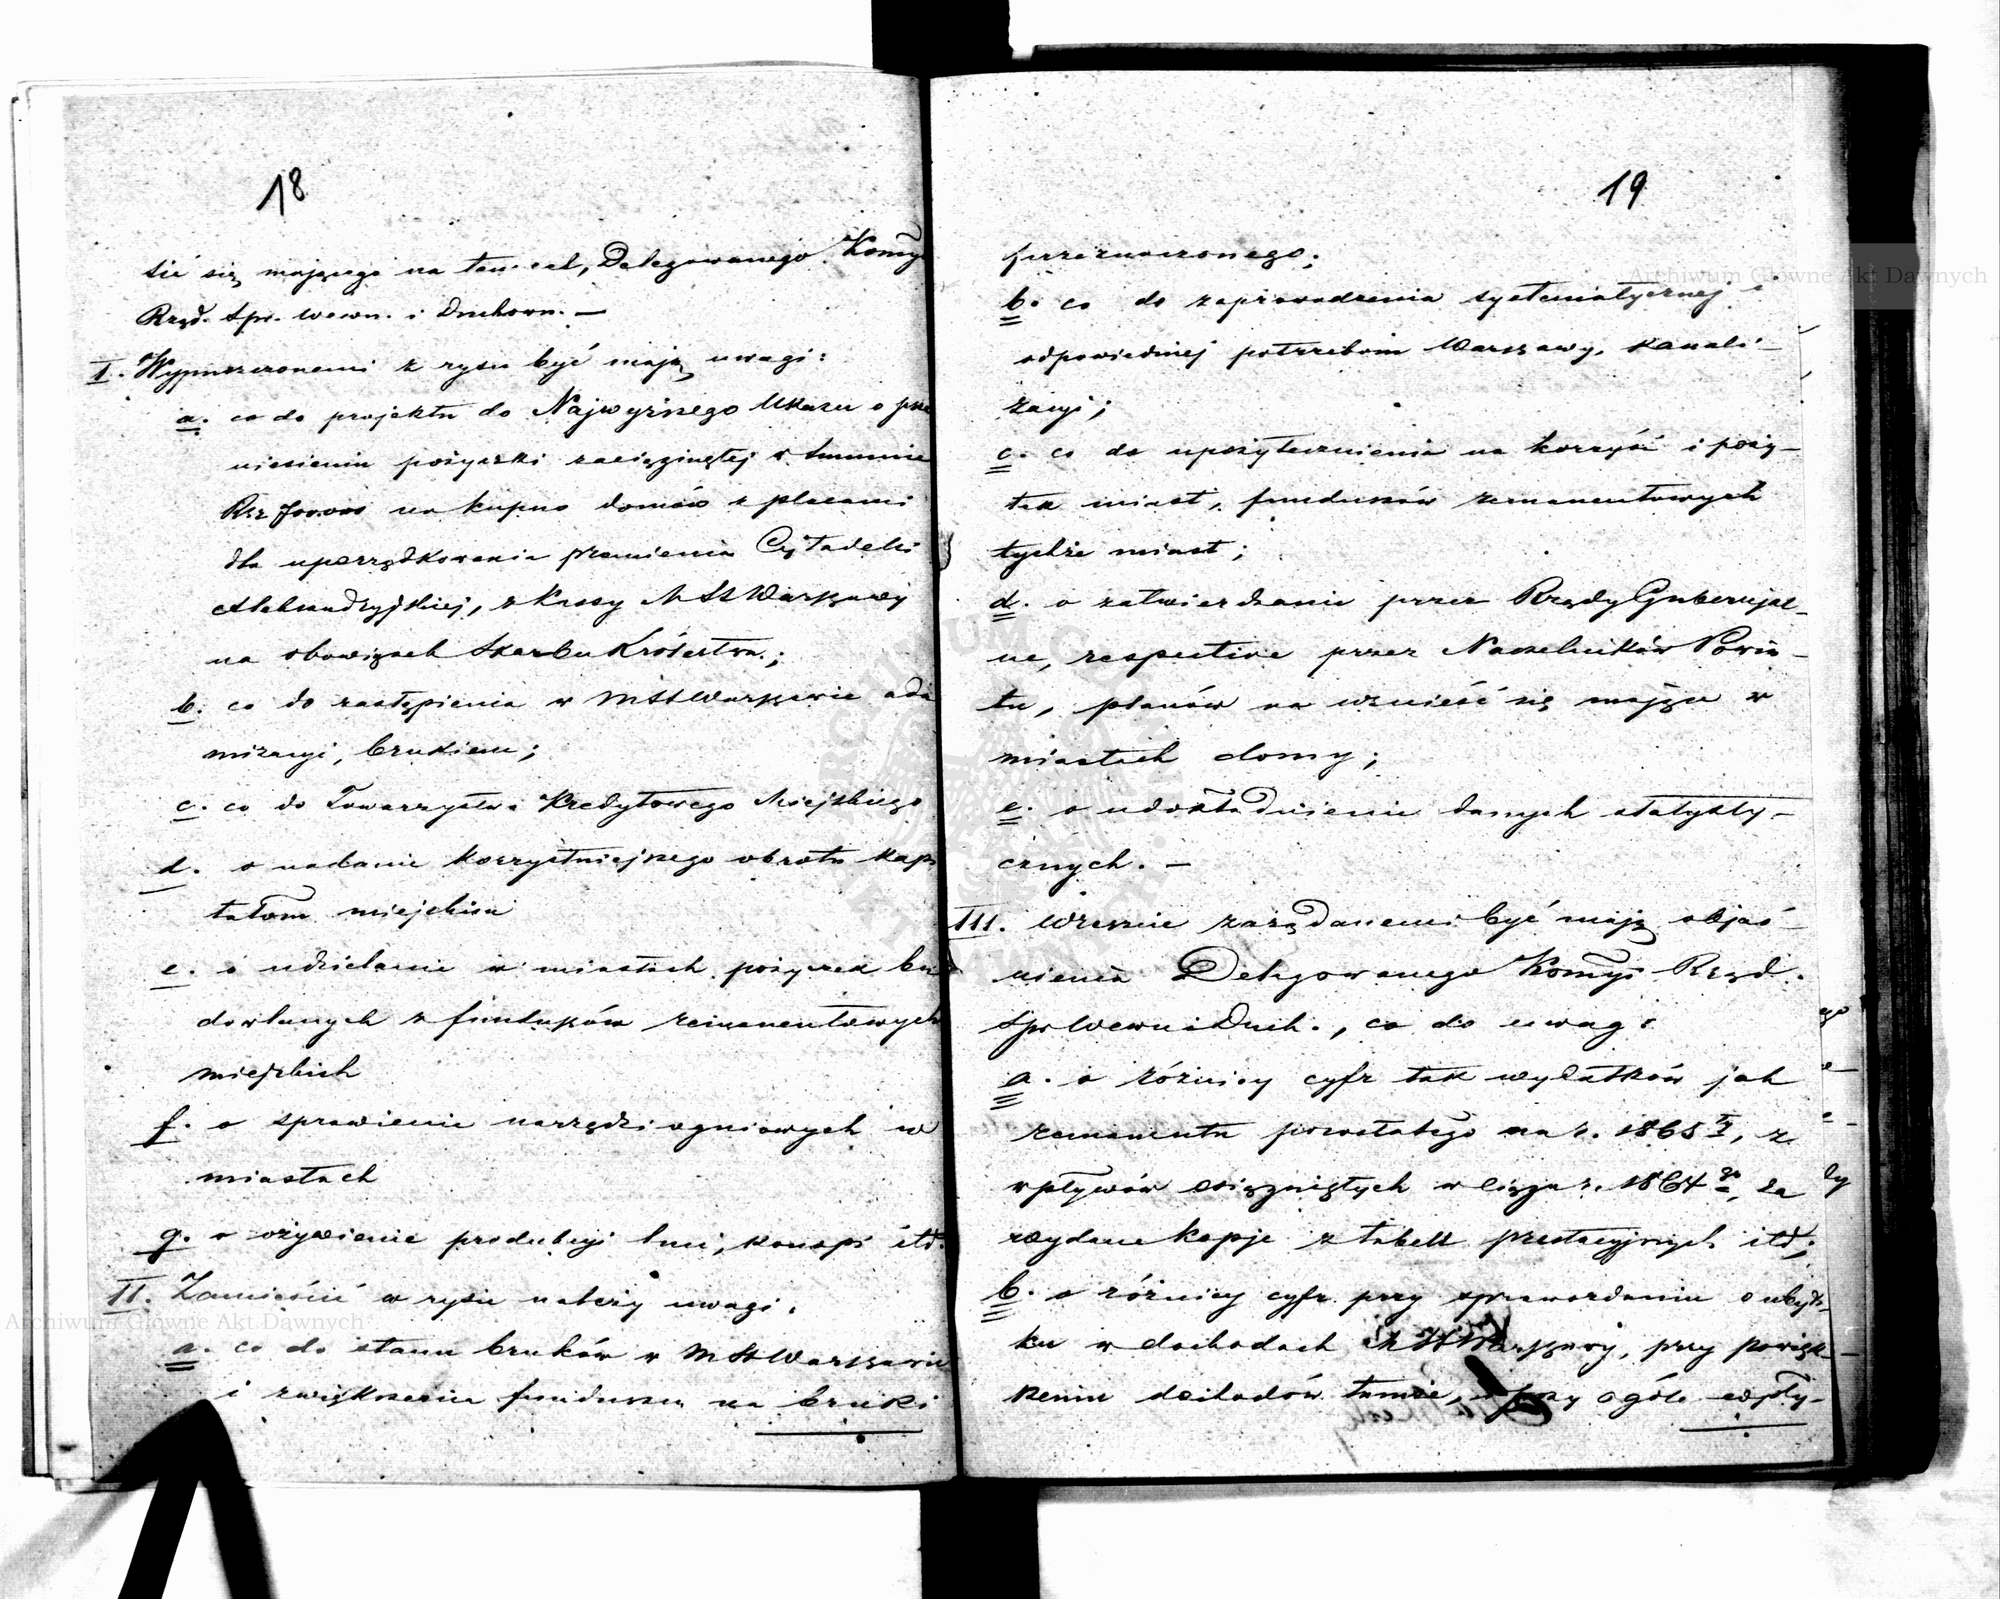 18
się mającego na ten cel, Delegowanego Komy
Rząd. Spr. Wewn. i Duchown. —
I. Wypuszczonemi z rysu być mają uwagi:
a. co do projektu do Najwyższego Ukazu o prze
niesieniu pożyczki zaciągniętej w summie
Rsr na kupno domów z placami
dla uporządkowania promienia Cytadelli
Aleksandryjskiej, z Kassy M St Warszawy
na obowiązek Skarbu Królestwa.;
b. co do zastąpienia w M St Warszawie ada
mizacyi, brukiem;
c. co do Towarzystwa Kredytowego Miejskiego
d. o nadanie korzystniejszego obrotu kapi
tałom miejskim
e. o udzielanie w miastach pożyczek bu
dowlanych z funduszów remanentowych
miejskich
f. o sprawienie narzędzi ogniowych w
miastach
g. o ożywienie produkcyi lnu, konopi itd.
II. Zamieścić w rysie należy uwagi.
a. co do stanu bruków w M St Warszawie
i zwiększenia funduszu na bruki
19
przeznaczonego;
b. co do zaprowadzenia systematycznej i
odpowiedniej potrzebom Warszawy, kanali-
zacyi;
c. co do upożytecznienia na korzyść i poży-
tek miast, funduszów remanentowych
tychże miast;
d. o zatwierdzanie przez Rządy Gubernjal-
ne, respective przez Naczelników Powia-
tu, planów na wznieść się mające w
miastach domy;
e. o udokładnienie danych statysty-
cznych. —
III. Wreszcie zażądanemi być mają objaś-
nienia Delegowanego Komyi Rząd.
Spr Wewn i Duch., co do uwag:
a. o różnicy cyfr tak wydatków jak
remanentu pozostałego na r. 1865ty, z
wpływów osiągniętych w ciągu r. 1864go, za
wydane kopje z tabell prestacyjnych itd;
b. o różnicy cyfr przy sprawozdaniu o ubyt-
ku w dochodach M St Warszawy, przy powięk-
szeniu dochodów tamże, i przy ogóle wpły-
Archiwum Główne Akt Dawnych
Archiwum Główne Akt Dawnych